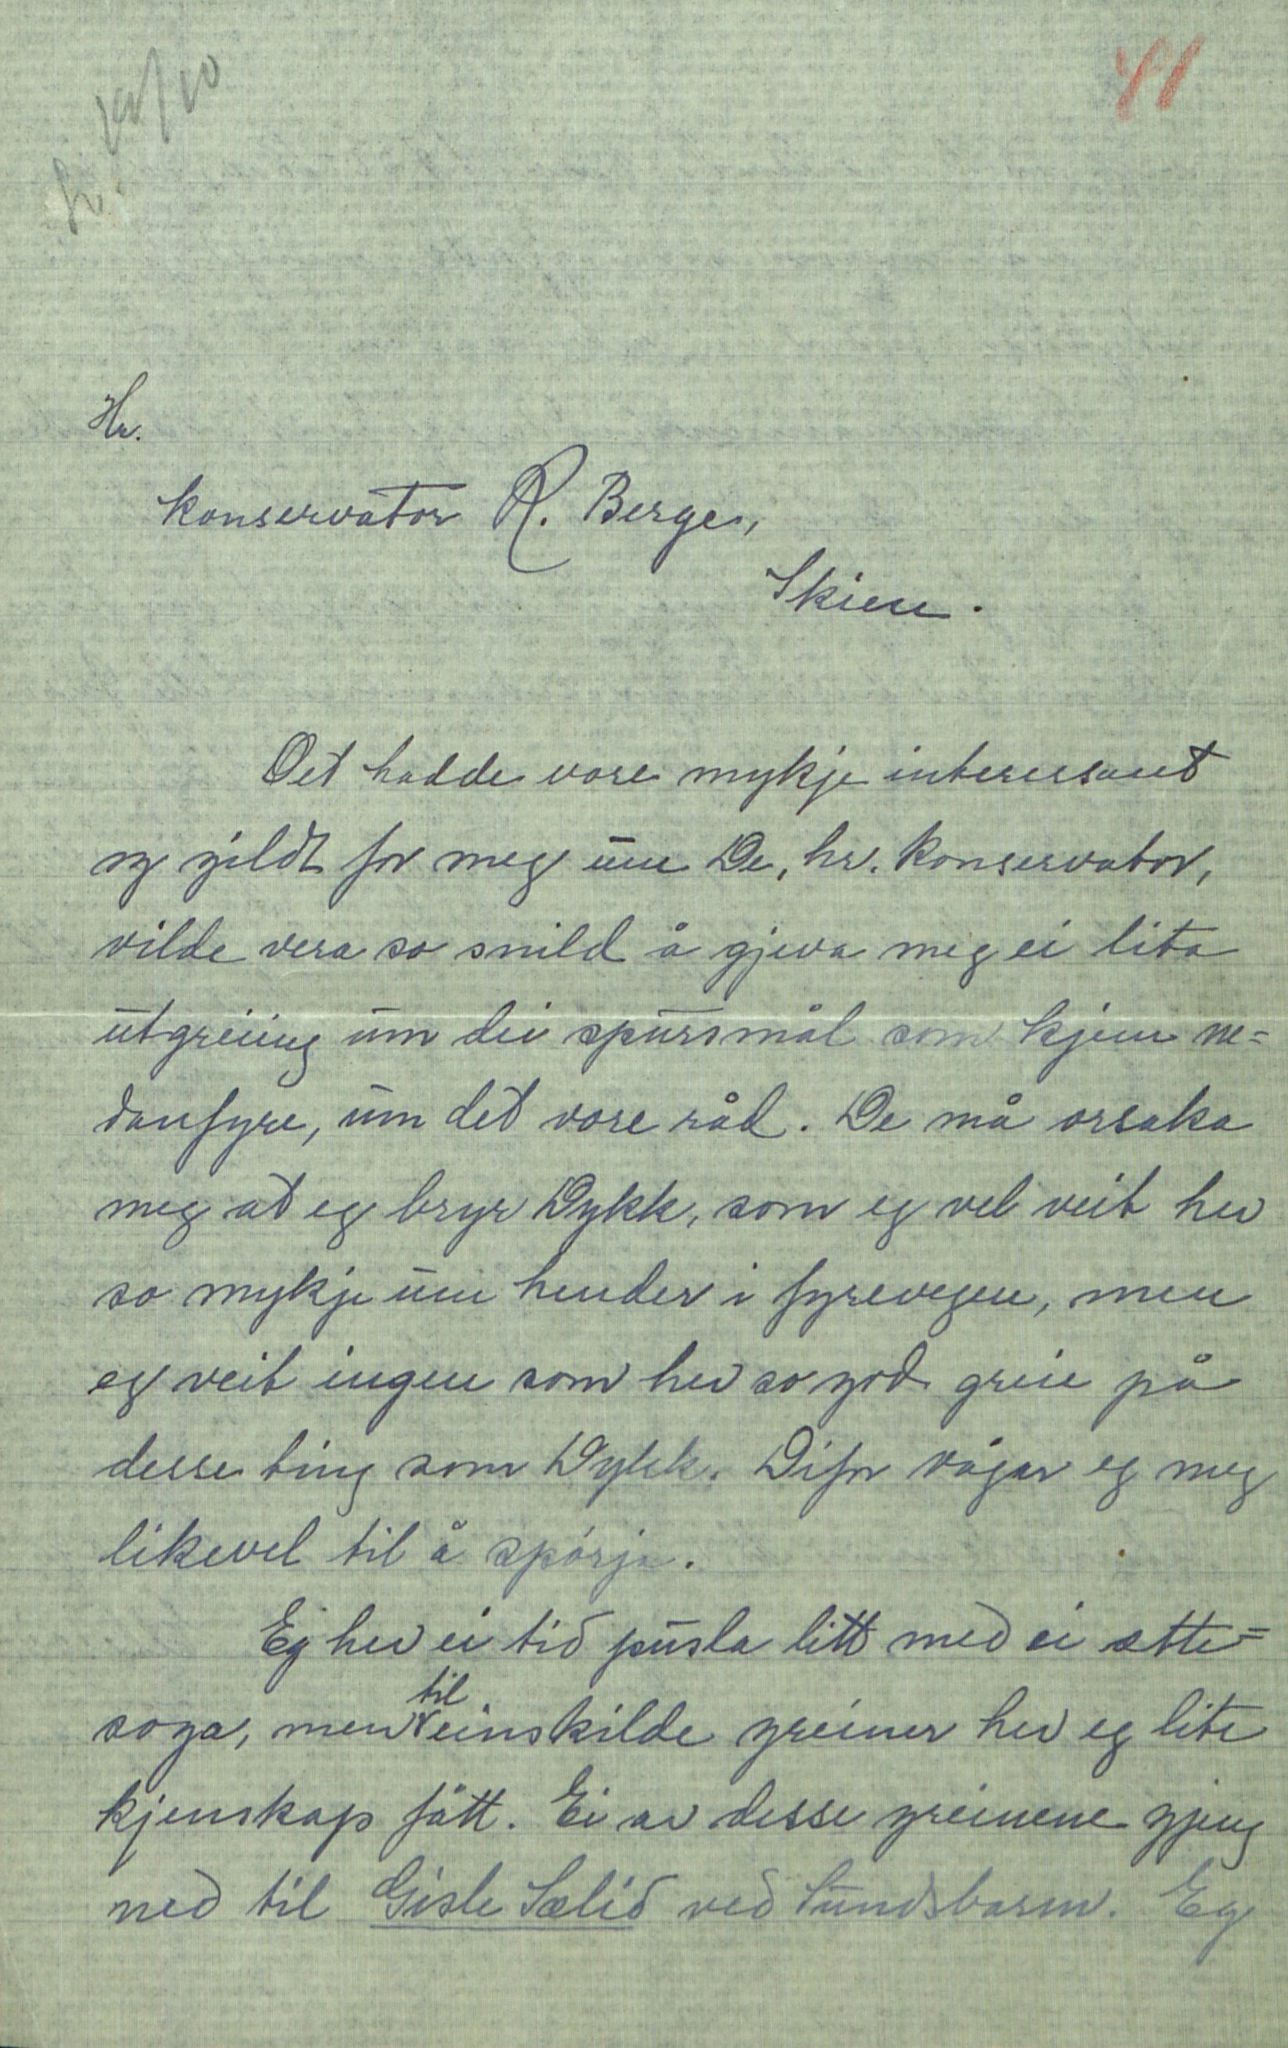 41
Hr.
konservator R. Berge,
Skien.
Det hadde vore mykje interessant
og gildt for meg um De, hr. konservator,
vilde vera so snild å gjeva meg ei lita
utgreiing um dei spursmål som kjem ne=
danfyre, um det vore råd. De må orsaka
meg at eg bryr Dykk, som eg vel veit hev
so mykje um hender i fyrevegen, men
eg veit ingen som hev so god grein på
desse ting som Dykk. Difor vågar eg meg
likevel til å spørja.
Eg hev ei tid pusla litt med ei ætte=
soga, men til einskilde greiner hev eg lite
kjenskap fått. Ei av desse greinene gjeng
ned til Gisle Sælid ved Sundsbarm. Eg